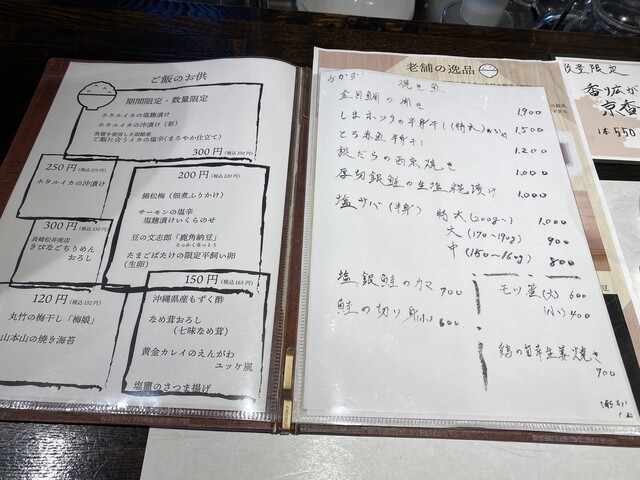 ご飯のお供
期間限定・数量限定
ホタルイカの塩麹漬け
ホタルイカの沖漬け(新)
ご飯に合うイカの塩辛(まろやか仕立て)
300円(税込330円)
250円(税込275円)
ホタルイカの沖漬け
200円(税込220円)
錦松梅(佃煮ふりかけ)
サーモンの塩辛
塩麹漬けいくらのせ
豆の文志郎「鹿角納豆」
たまごばたけの限定平飼い卵
(生卵)
300円(税込330円)
長崎松井商店
きびなごちりめん
おろし
150円(税込165円)
沖縄県産もずく酢
なめ茸おろし
(七味なめ茸)
黄金カレイのえんがわ
ユッケ風
塩竈のさつま揚げ
120円(税込132円)
丸竹の梅干し「梅娘」
山本山の焼き海苔
老舗の逸品
おかず 焼き魚
金目鯛の開き 1,900
しまホッケの半身干し(特大) 1,500
とろ赤魚半身干し 1,200
銀だらの西京焼き 1,000
厚切銀鮭の生塩糀漬け 1,000
塩サバ(半身) 特大(200g〜) 1,000
大(170〜190g) 900
中(150〜160g) 800
塩銀鮭のカマ 700
鮭の切り身(小) 600
モツ煮(大) 600
(小) 400
鶏の自家生姜焼き
900
数量限定
香り広が
京香
1本550